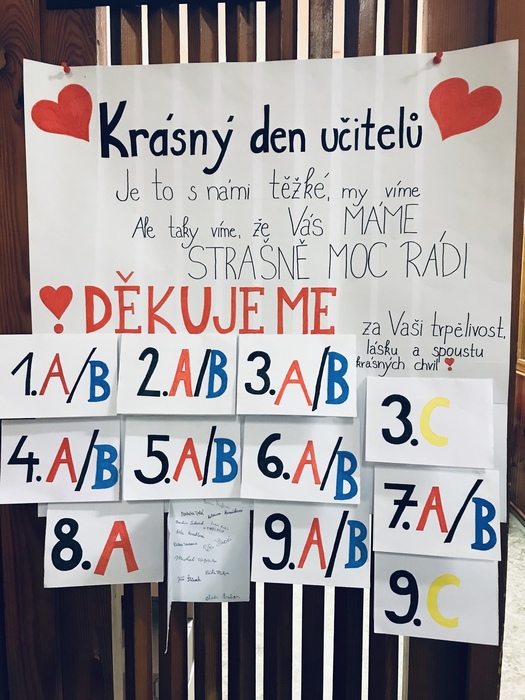 Krásný den učitelů
Je to s námi těžké, my víme
Ale taky víme, že Vás MÁME
STRAŠNĚ MOC RÁDI
DĚKUJEME
za Vaši trpělivost,
lásku a spoustu
krásných chvil
1.A/B
2.A/B
3.A/B
3.C
4.A/B
5.A/B
6.A/B
7.A/B
8.A
9.A/B
9.C